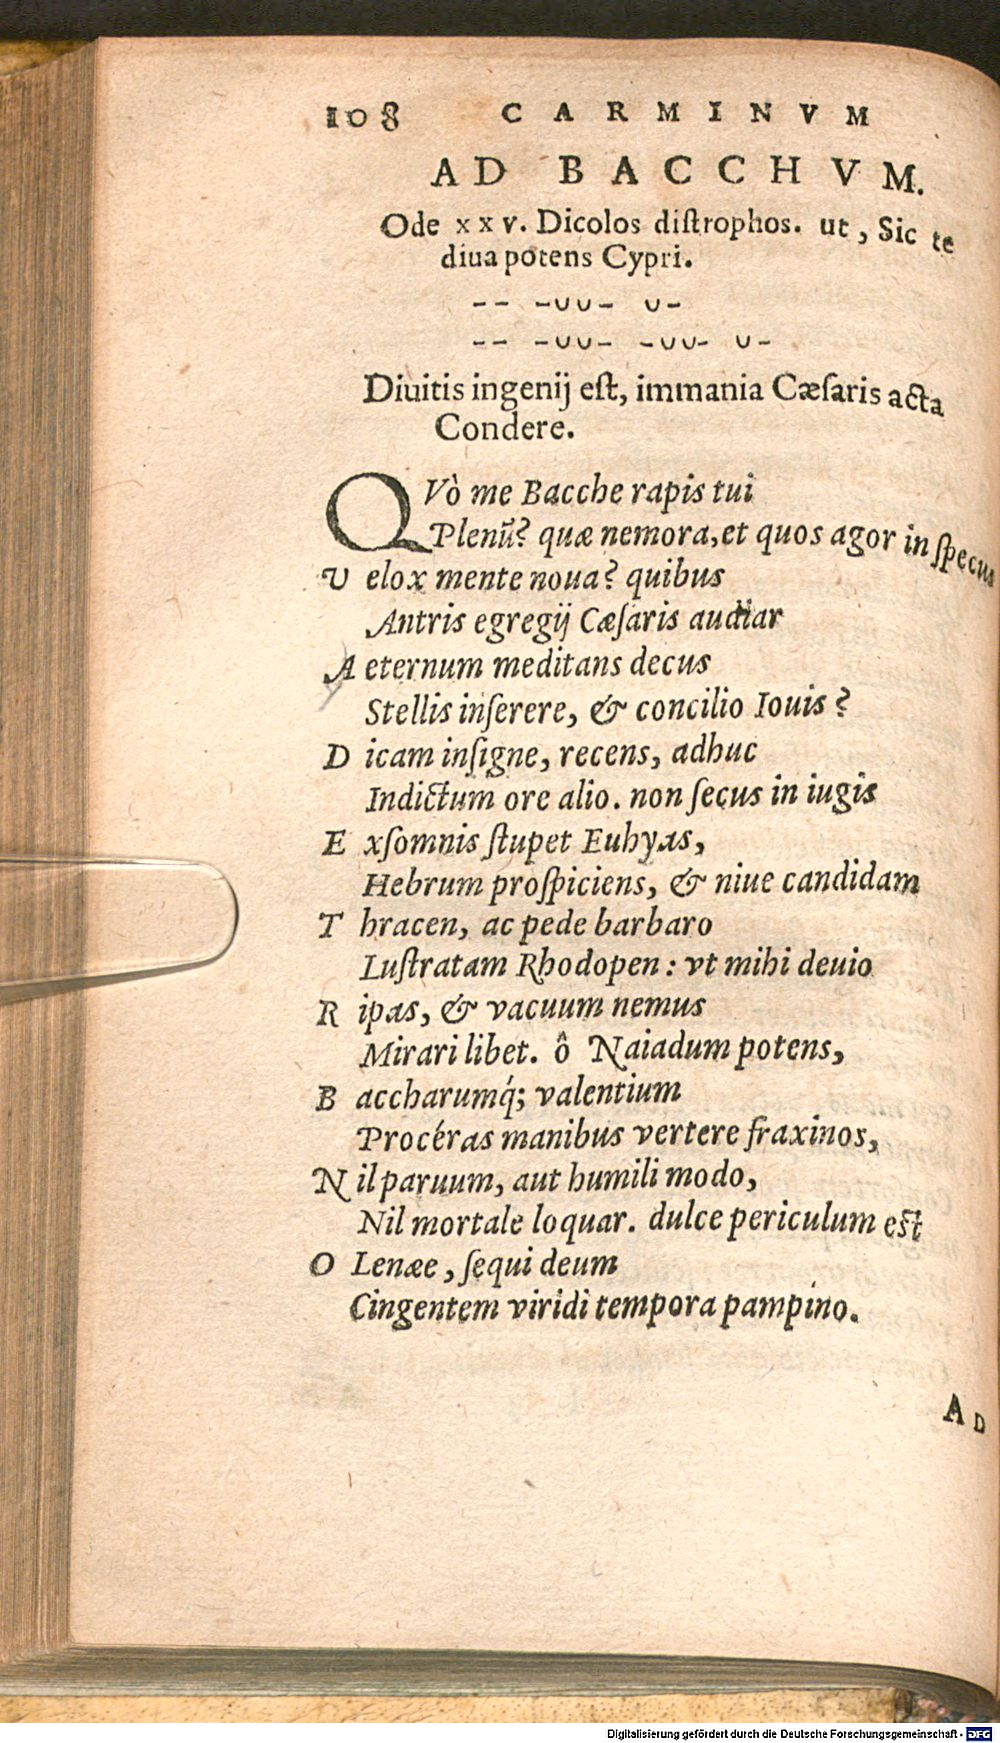 108 CARMINVM
AD BACCHVM.
Ode xxv. Dicolos diſtrophos. ut, Sic te
diua potens Cypri.
-- -∪∪- ∪-
-- -∪∪- -∪∪- ∪-
Diuitis ingenij eſt, immania Cæſaris acta
Condere.
QVò me Bacche rapis tui
Plenũ? quæ nemora, et quos agor in ſpecus
Velox mente noua? quibus
Antris egregij Cæſaris audiar
Aeternum meditans decus
Stellis inſerere, & concilio Iouis?
Dicam inſigne, recens, adhuc
Indictum ore alio. non ſecus in iugis
Exſomnis ſtupet Euhyas,
Hebrum proſpiciens, & niue candidam
Thracen, ac pede barbaro
Luſtratam Rhodopen: vt mihi deuio
Ripas, & vacuum nemus
Mirari libet. ô Naiadum potens,
Baccharumq́; valentium
Procéras manibus vertere fraxinos,
Nil paruum, aut humili modo,
Nil mortale loquar. dulce periculum eſt
O Lenæe, ſequi deum
Cingentem viridi tempora pampino.
AD
Digitalisierung gefördert durch die Deutsche Forschungsgemeinschaft - DFG